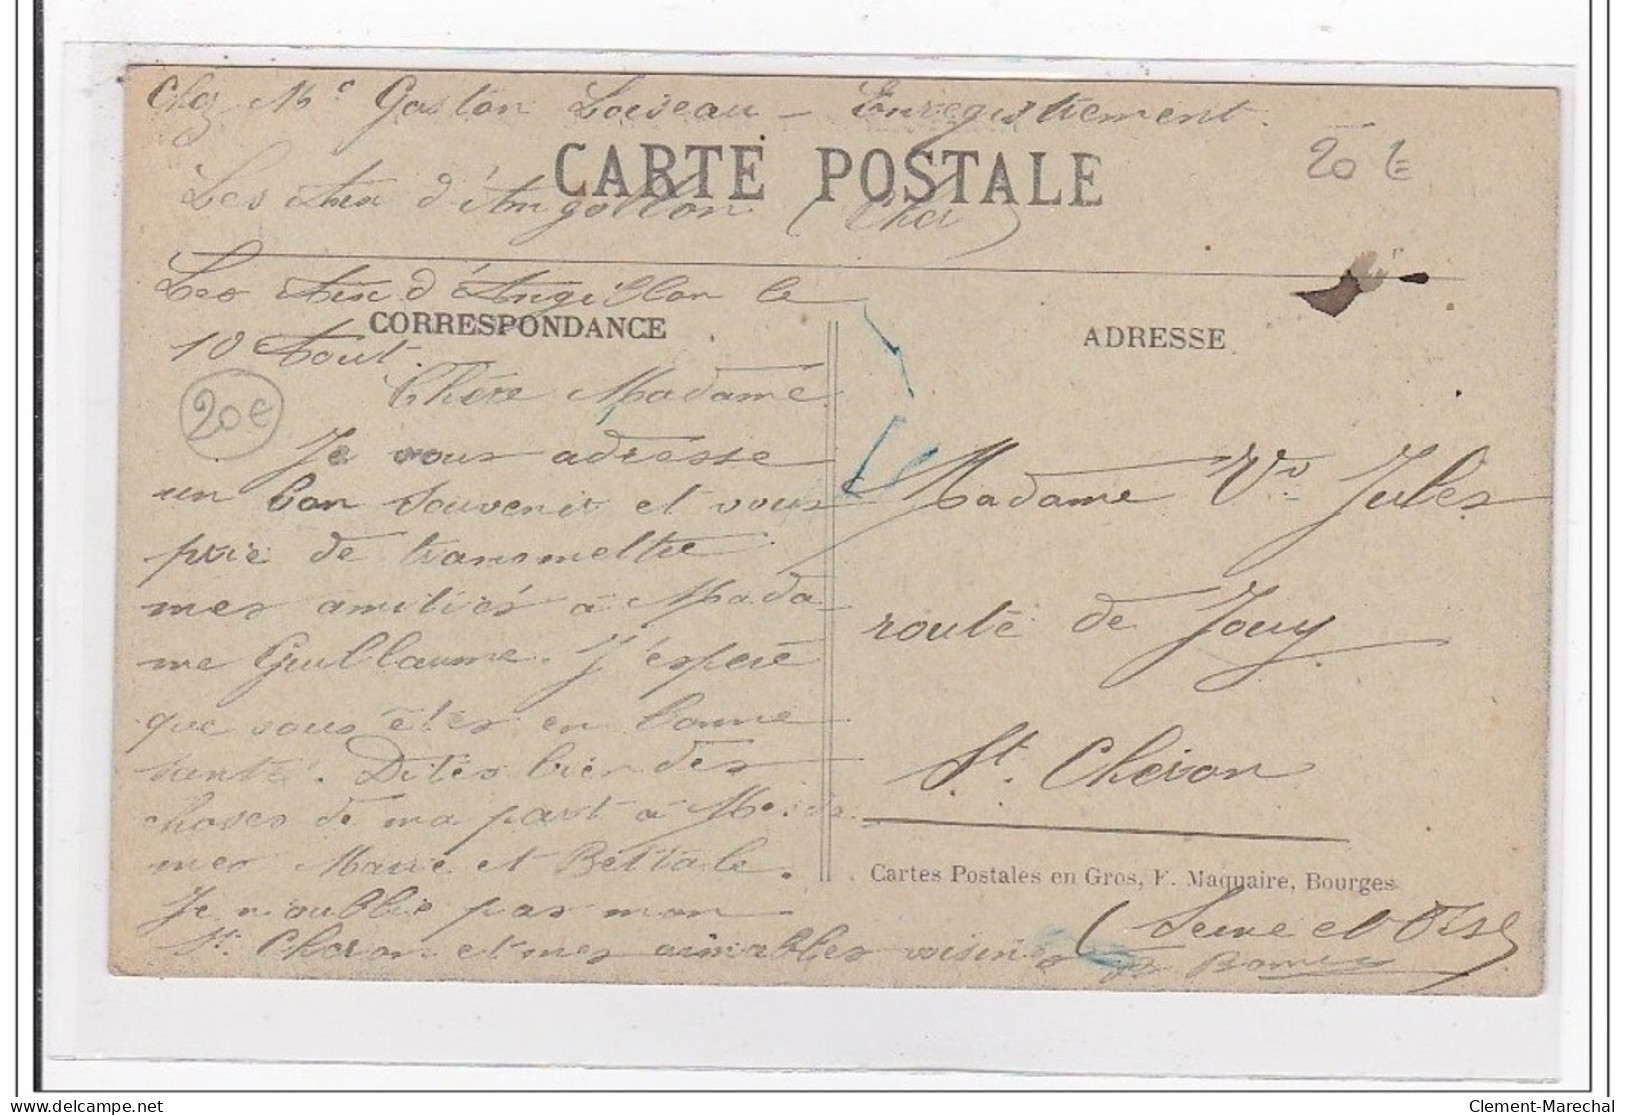 Chez Mr Gaston Loiseau – Enregistrement.
CARTE POSTALE
20 €
Les Aix d'Angillon (Cher)
Les Aix d'Angillon le
CORRESPONDANCE
10 Aout.
20€
Chère Madame
Je vous adresse
un bon souvenir et vous
prie de transmettre
mes amitiés à Mada-
me Guillaume. J'espère
que vous êtes en bonne
santé. Dites bien des
choses de ma part à
mes Marie et
Je n'oublie pas mon
St. Cheron et mes aimables voisins
ADRESSE
Madame Vve Jules
route de Jouy
St. Cheron
Cartes Postales en Gros, F. Maquaire, Bourges
(Seine et Oise)
Clement-Marechal